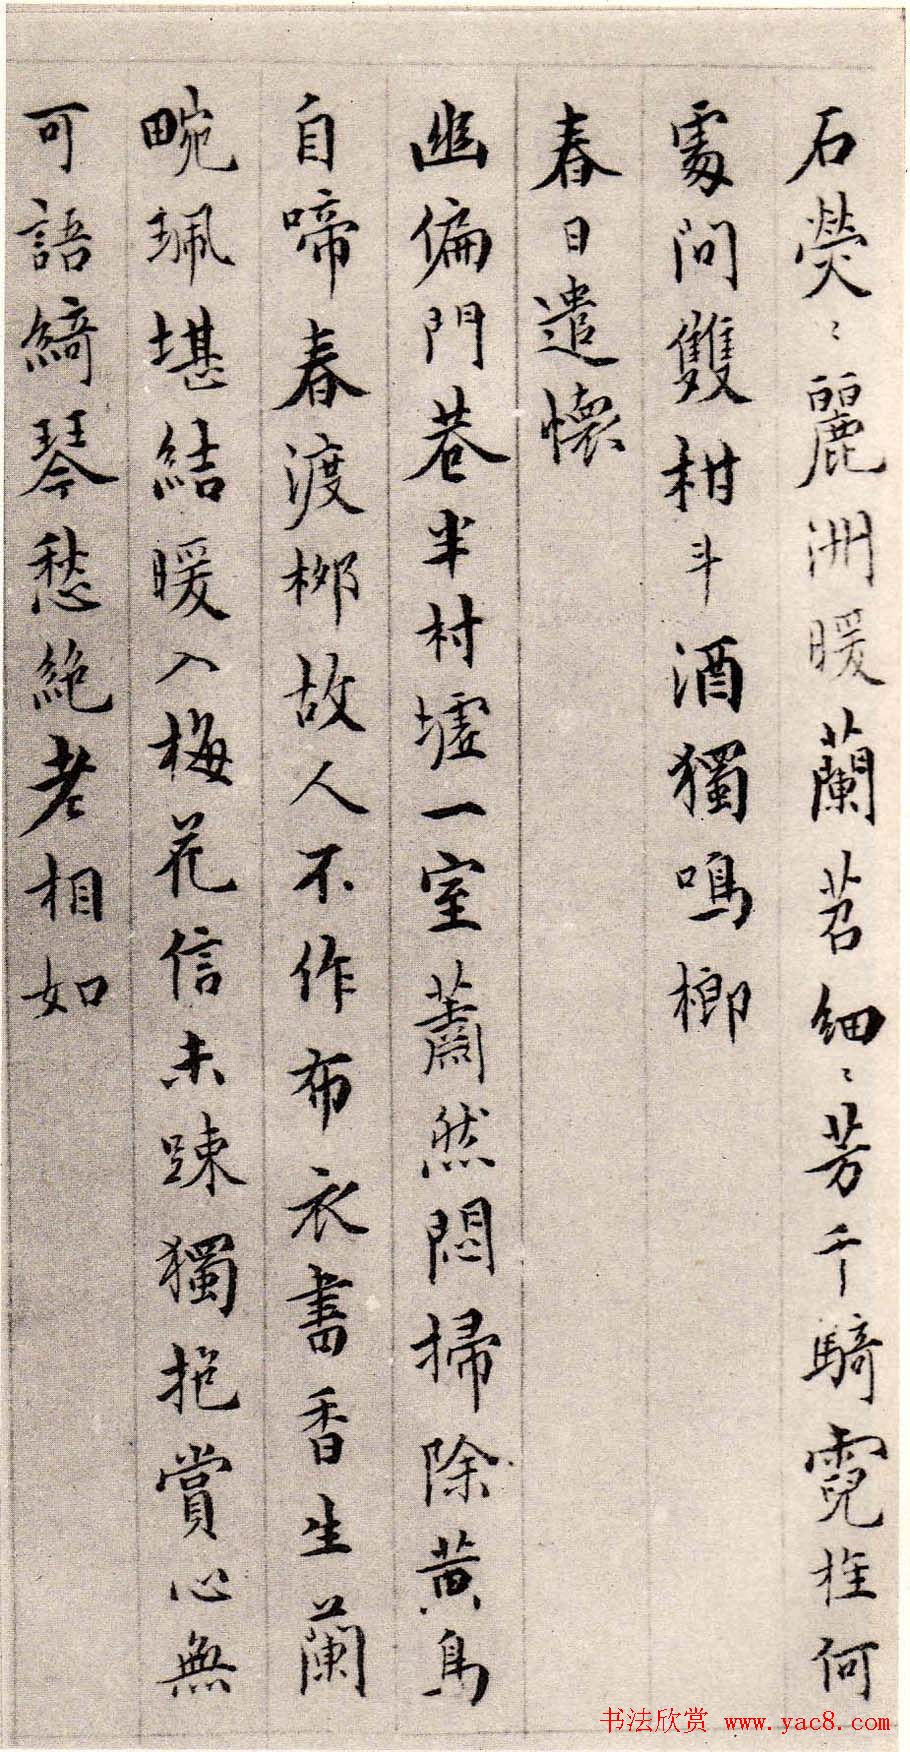 石熒〻麗洲暖蘭苕細〻芳千騎霓旌何
處問雙柑斗酒獨鳴榔
春日遣懷
幽偏門巷半村墟一室蕭然悶掃除黃鳥
自啼春渡柳故人不作布衣書香生蘭
畹珮堪結暖入梅花信未疎獨抱賞心無
可語綺琴愁絕老相如
书法欣赏 www.yac8.com